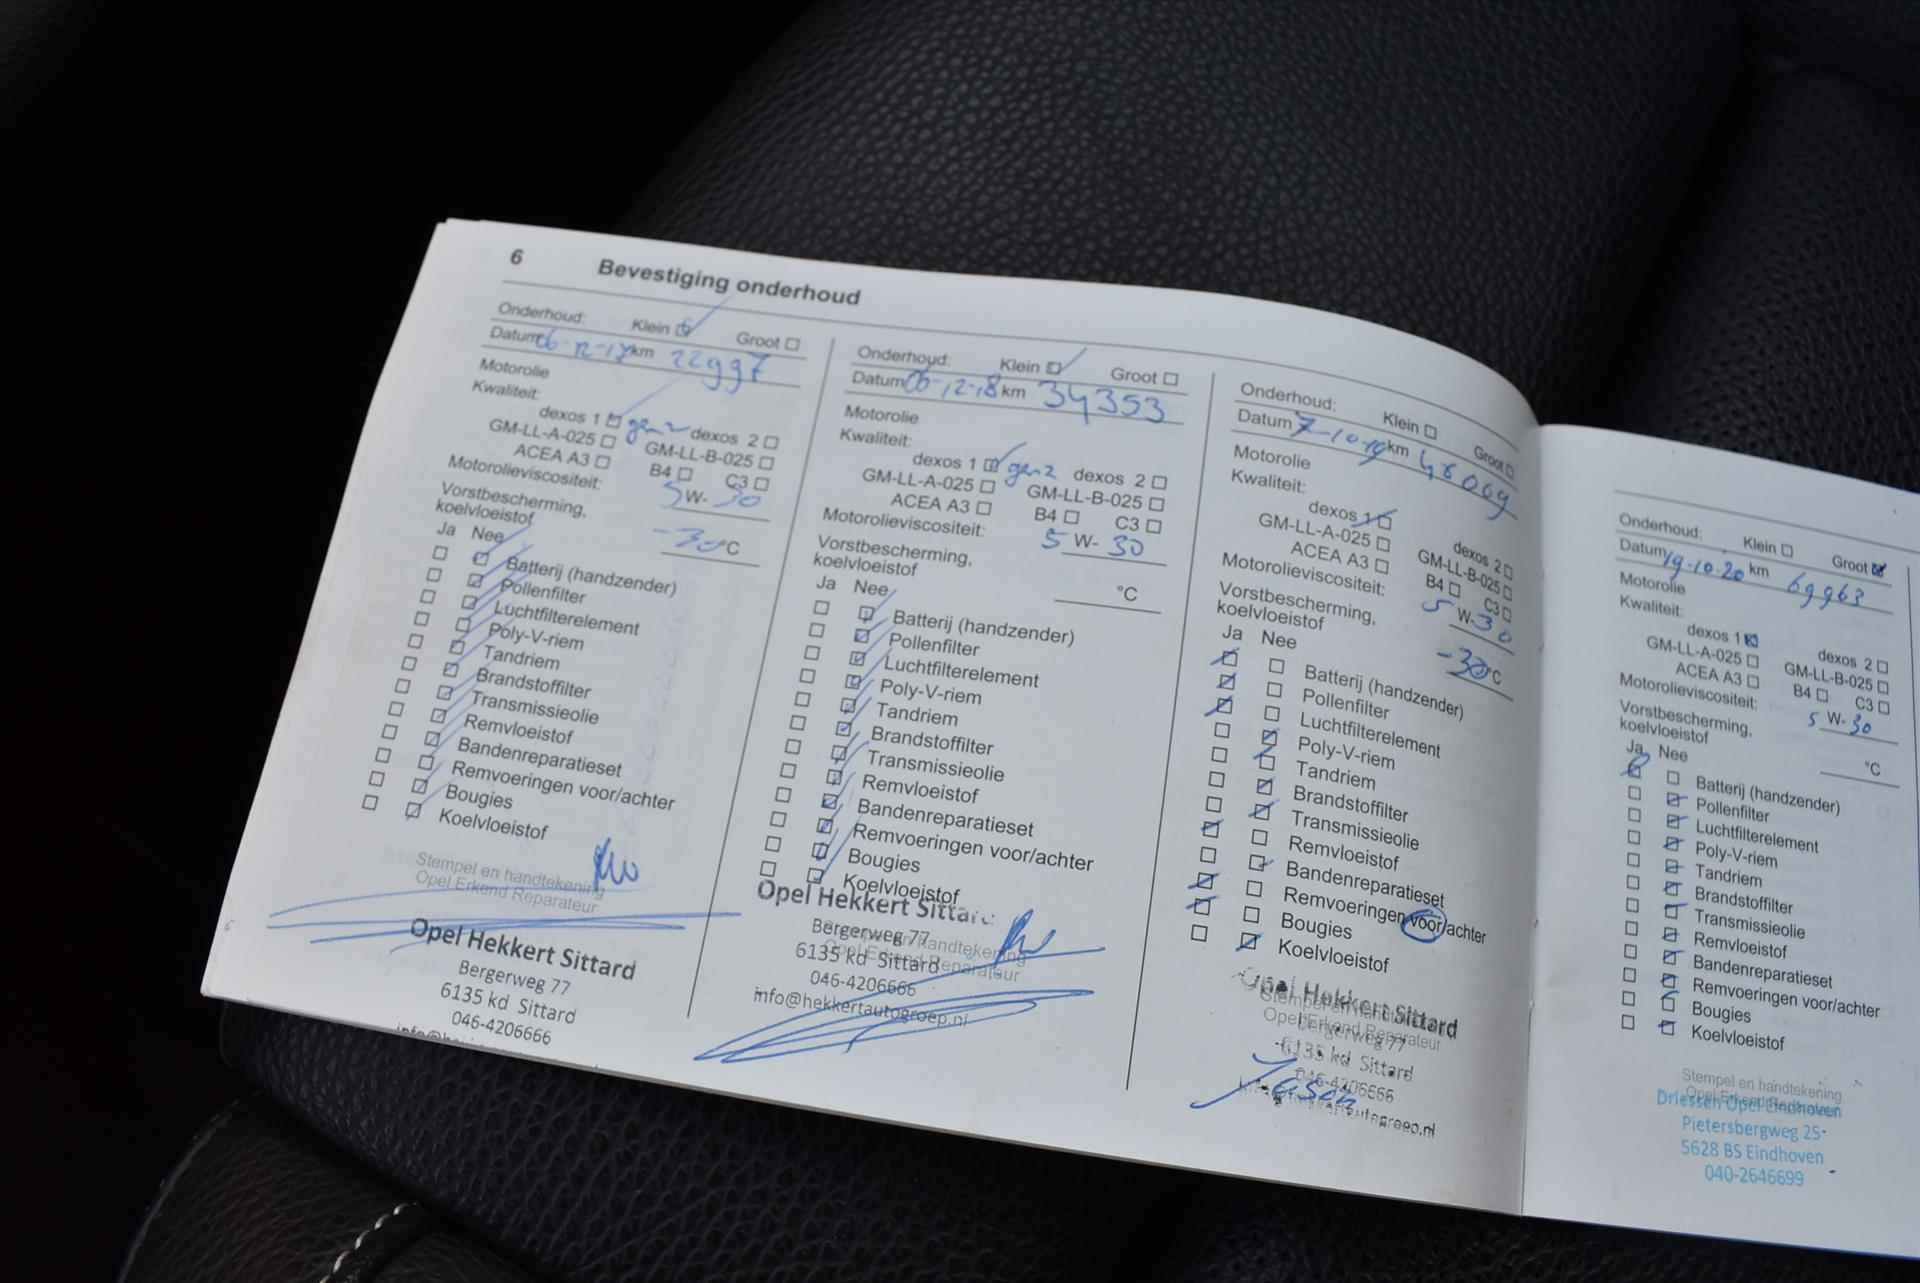 6 Bevestiging onderhoud
Onderhoud: Klein Groot
Datum 06-12-17 km 22997
Motorolie
Kwaliteit:
dexos 1 gen 2 dexos 2
GM-LL-A-025 GM-LL-B-025
ACEA A3 B4 C3
Motorolieviscositeit: 5 W- 30
Vorstbescherming,
koelvloeistof -30 °C
Ja Nee
Batterij (handzender)
Pollenfilter
Luchtfilterelement
Poly-V-riem
Tandriem
Brandstoffilter
Transmissieolie
Remvloeistof
Bandenreparatieset
Remvoeringen voor/achter
Bougies
Koelvloeistof
Stempel en handtekening
Opel Erkend Reparateur
Opel Hekkert Sittard
Bergerweg 77
6135 kd Sittard
046-4206666
Onderhoud: Klein Groot
Datum 06-12-18 km 34353
Motorolie
Kwaliteit:
dexos 1 gen 2 dexos 2
GM-LL-A-025 GM-LL-B-025
ACEA A3 B4 C3
Motorolieviscositeit: 5 W- 30
Vorstbescherming,
koelvloeistof °C
Ja Nee
Batterij (handzender)
Pollenfilter
Luchtfilterelement
Poly-V-riem
Tandriem
Brandstoffilter
Transmissieolie
Remvloeistof
Bandenreparatieset
Remvoeringen voor/achter
Bougies
Koelvloeistof
Opel Hekkert Sittard
Bergerweg 77
Stempel en handtekening
6135 kd Sittard
Opel Erkend Reparateur
046-4206666
info@hekkertautogroep.nl
Onderhoud: Klein Groot
Datum 7-10-19 km 48069
Motorolie
Kwaliteit:
dexos 1 dexos 2
GM-LL-A-025 GM-LL-B-025
ACEA A3 B4 C3
Motorolieviscositeit: 5 W- 30
Vorstbescherming,
koelvloeistof -30 °C
Ja Nee
Batterij (handzender)
Pollenfilter
Luchtfilterelement
Poly-V-riem
Tandriem
Brandstoffilter
Transmissieolie
Remvloeistof
Bandenreparatieset
Remvoeringen voor/achter
Bougies
Koelvloeistof
Opel Hekkert Sittard
Stempel en handtekening
Opel Erkend Reparateur
Bergerweg 77
6135 kd Sittard
046-4206666
Onderhoud: Klein Groot
Datum 19-10-20 km 69963
Motorolie
Kwaliteit:
dexos 1 dexos 2
GM-LL-A-025 GM-LL-B-025
ACEA A3 B4 C3
Motorolieviscositeit: 5 W- 30
Vorstbescherming,
koelvloeistof °C
Ja Nee
Batterij (handzender)
Pollenfilter
Luchtfilterelement
Poly-V-riem
Tandriem
Brandstoffilter
Transmissieolie
Remvloeistof
Bandenreparatieset
Remvoeringen voor/achter
Bougies
Koelvloeistof
Stempel en handtekening
Opel Erkend Reparateur
Driessen Opel Eindhoven
Pietersbergweg 25
5628 BS Eindhoven
040-2646699